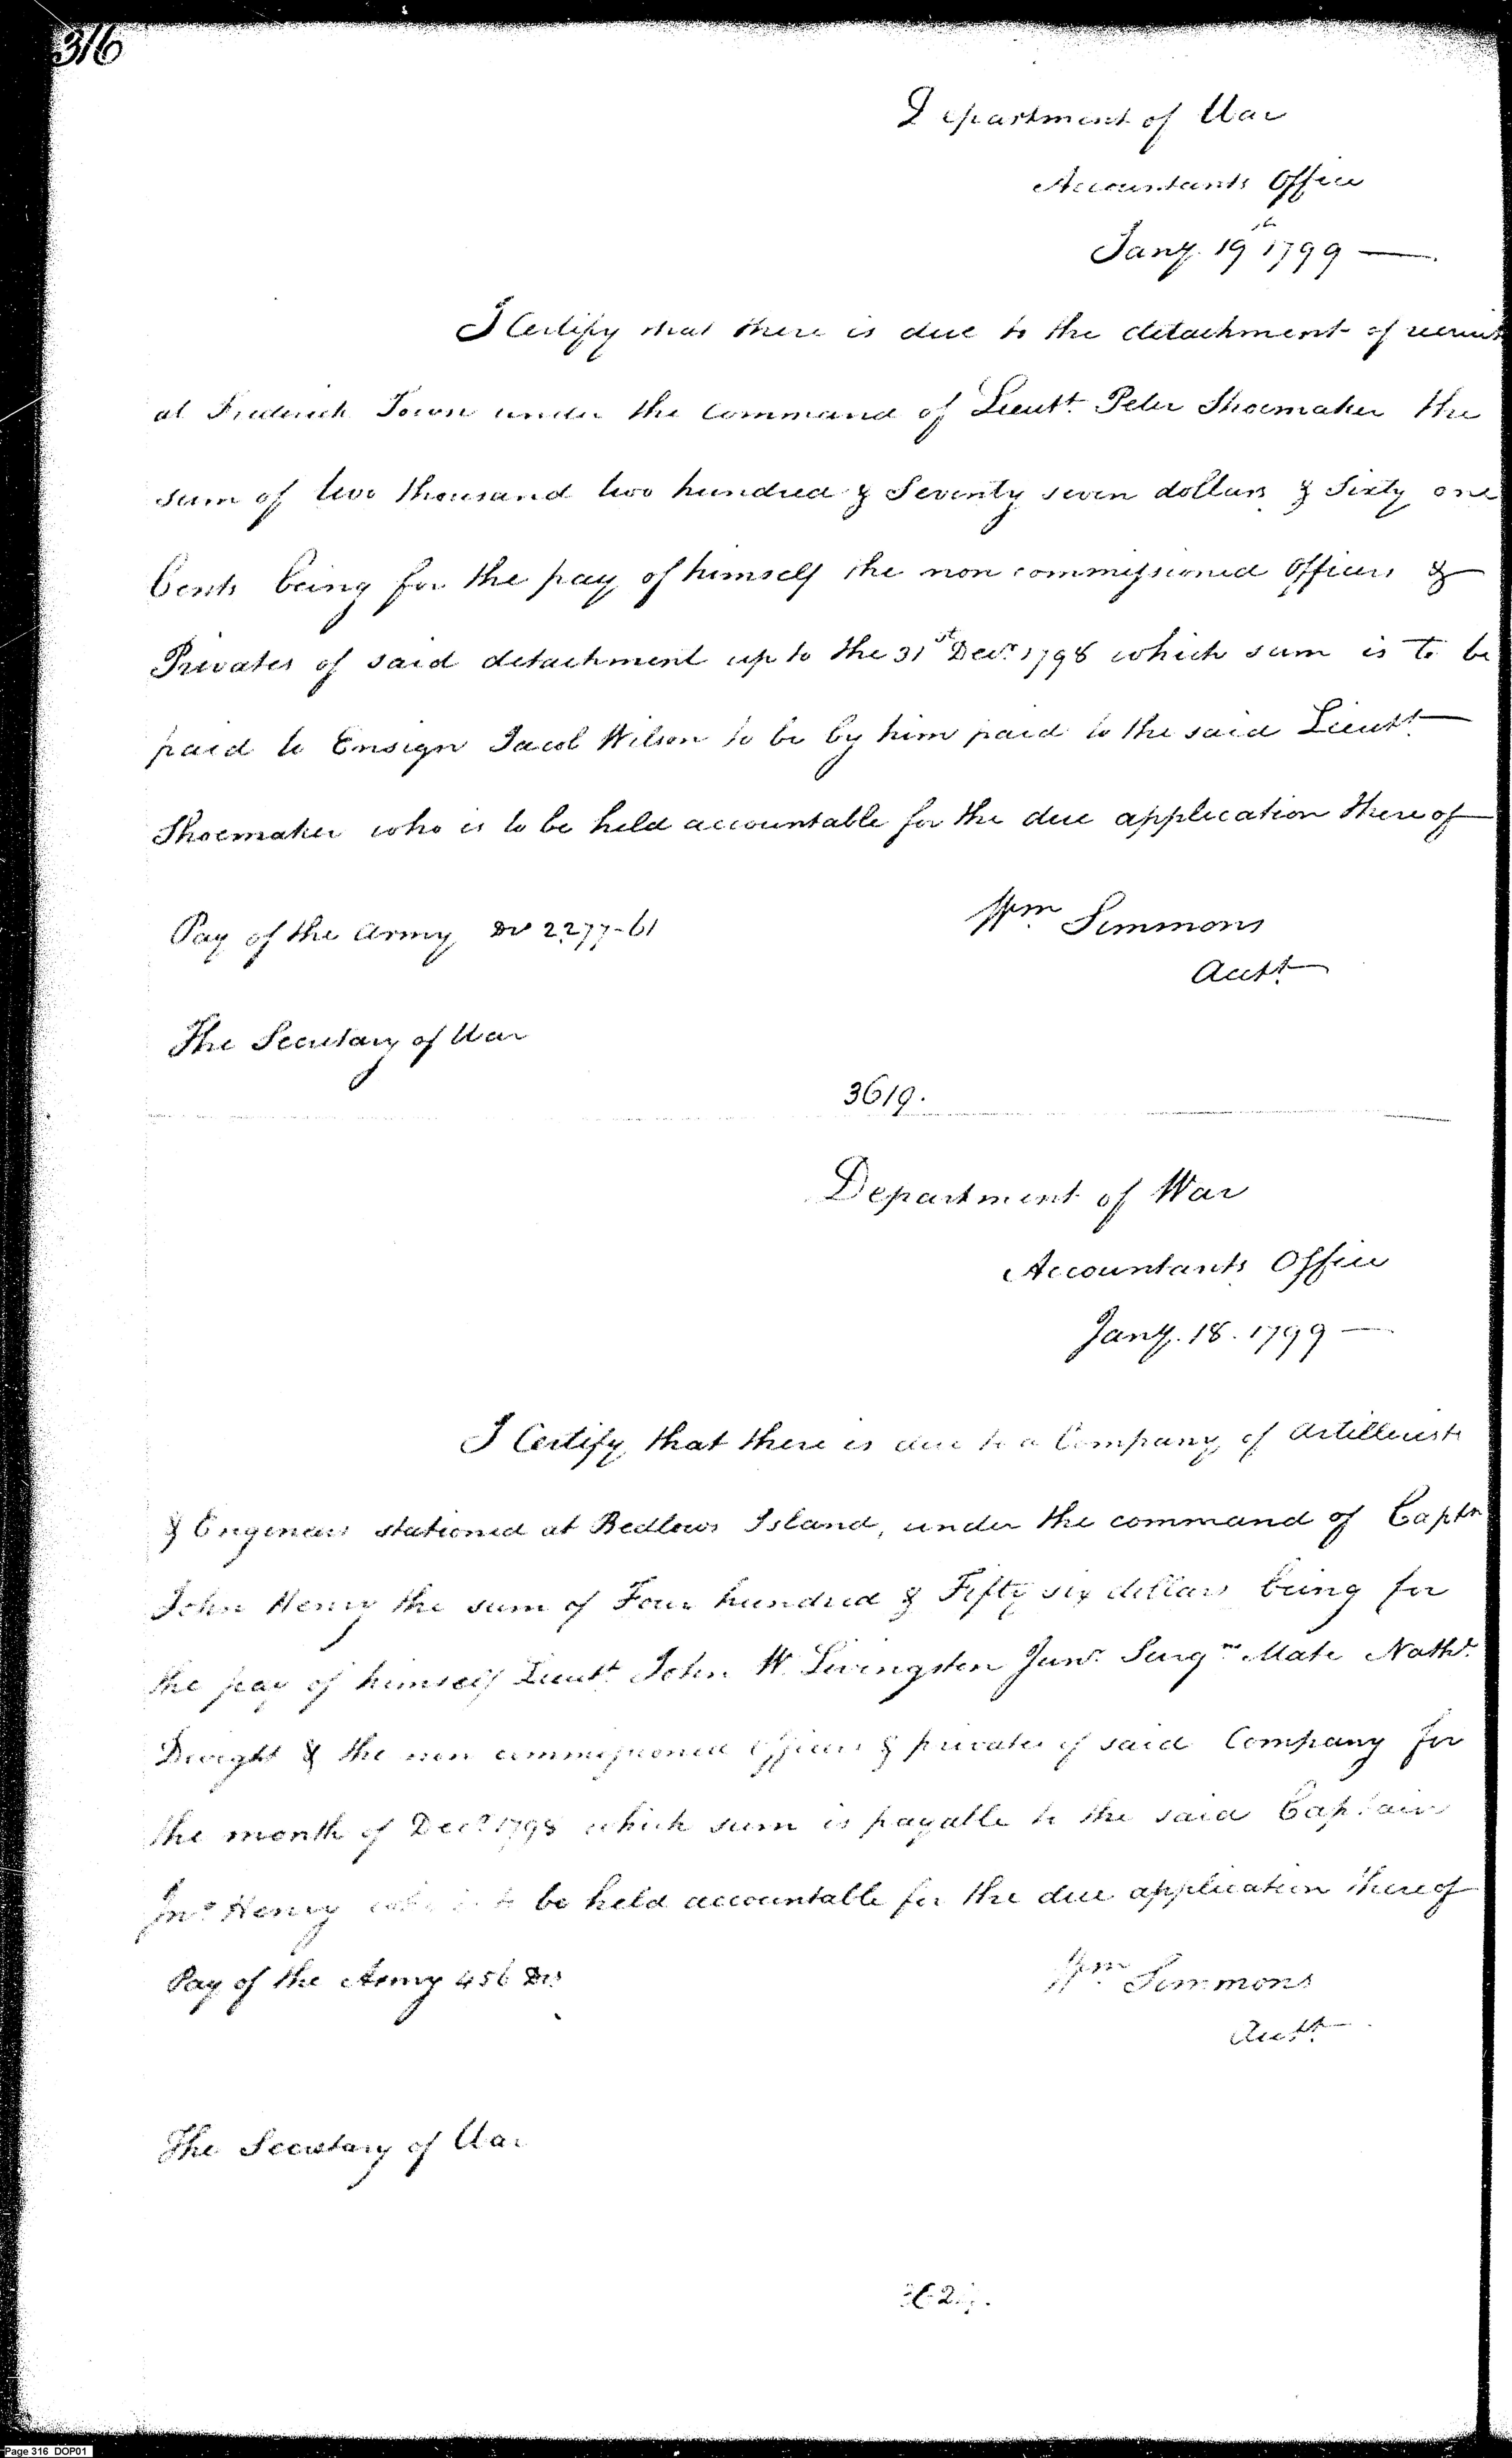 316
Department of War
Accountants Office
Jany. 19th 1799
I Certify that there is due to the detachment of recruits
at Frederick Town under the Command of Lieutt. Peter Shoemaker the
sum of two thousand two hundred & Seventy seven dollars & Sixty one
Cents being for the pay of himself the non commissioned Officers &
Privates of said detachment up to the 31st Decr. 1798 which sum is to be
paid to Ensign Jacob Wilson to be by him paid to the said Lieutt.
Shoemaker who is to be held accountable for the due application there of
Pay of the Army Ds 2277-61
Wm Simmons
Acctt.
The Secretary of War
3619.
Department of War
Accountants Office
Jany. 18. 1799
I Certify that there is due to a Company of Artillerists
& Engineers stationed at Bedlows Island, under the command of Captn
John Henry the sum of Four hundred & Fifty six dollars being for
the pay of himself Lieutt. John W. Livingston Junr. Surgns Mate Nathl.
Dwight & the non commissioned officers & privates of said Company for
the month of Decr. 1798 which sum is payable to the said Captain
Jno Henry who is to be held accountable for the due application thereof
Pay of the Army 456 Drs
Wm Simmons
Acctt.
The Secretary of War
Page 316 DOP01